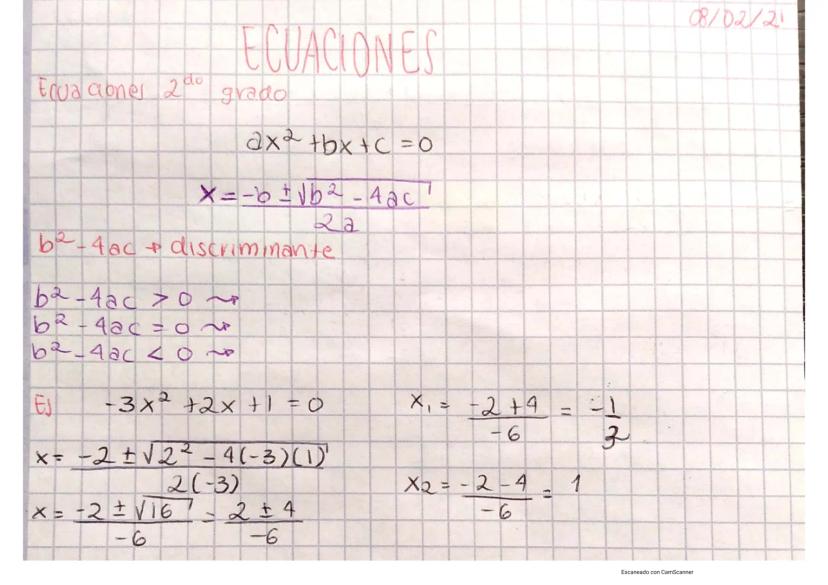 08/02/21
ECUACIONES
Ecuaciones 2do grado
ax² + bx + c = 0
x = -b ± √b² - 4ac
2a
b² - 4ac → discriminante
b² - 4ac > 0 ⇝
b² - 4ac = 0 ⇝
b² - 4ac < 0 ⇝
Ej -3x² + 2x + 1 = 0
x = -2 ± √2² - 4(-3)(1)
2(-3)
x = -2 ± √16 = 2 ± 4
-6 -6
x₁ = -2 + 4 = -1
-6 3
x₂ = -2 - 4 = 1
-6
Escaneado con CamScanner